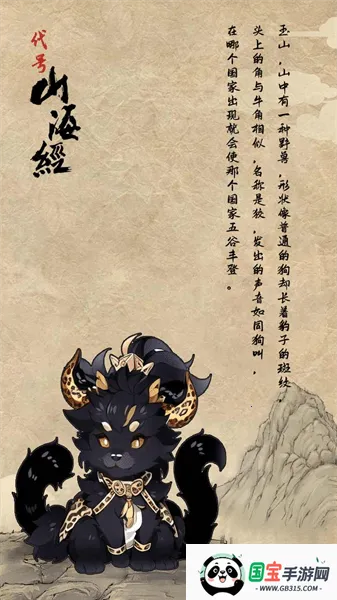 代号
山海經
玉山，山中有一种野兽，形状像普通的狗却长着豹子的斑纹，
头上的角与牛角相似，名称是狡，发出的声音如同狗叫，
在哪个国家出现就会使那个国家五谷丰登。
国宝手游网
WWW.GB315.COM